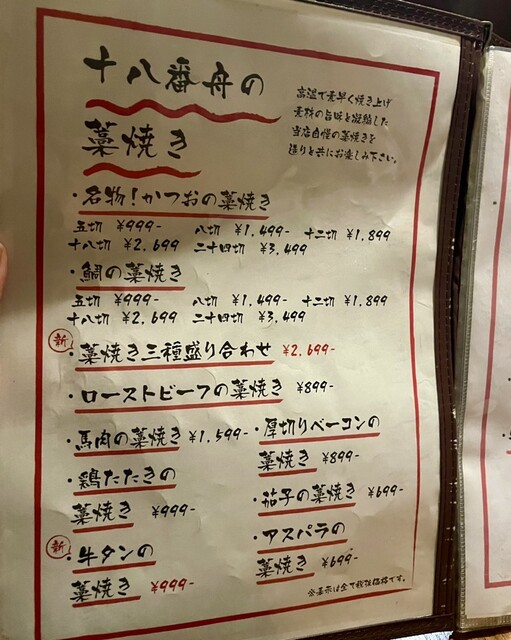 十八番舟の
藁焼き
高温で素早く焼き上げ
素材の旨味を凝縮した
当店自慢の藁焼きを
造りと共にお楽しみ下さい。
・名物！かつおの藁焼き
五切 ¥999- 八切 ¥1.499- 十二切 ¥1.899
十八切 ¥2.699 二十四切 ¥3.499
・鯛の藁焼き
五切 ¥999- 八切 ¥1.499- 十二切 ¥1.899
十八切 ¥2.699 二十四切 ¥3.499
新
・藁焼き三種盛り合わせ ¥2.699-
・ローストビーフの藁焼き ¥899-
・馬肉の藁焼き ¥1.599-
・鶏たたきの
藁焼き ¥999-
新
・牛タンの
藁焼き ¥999-
・厚切りベーコンの
藁焼き ¥899-
・茄子の藁焼き ¥699-
・アスパラの
藁焼き ¥699-
※表示は全て税抜価格です。